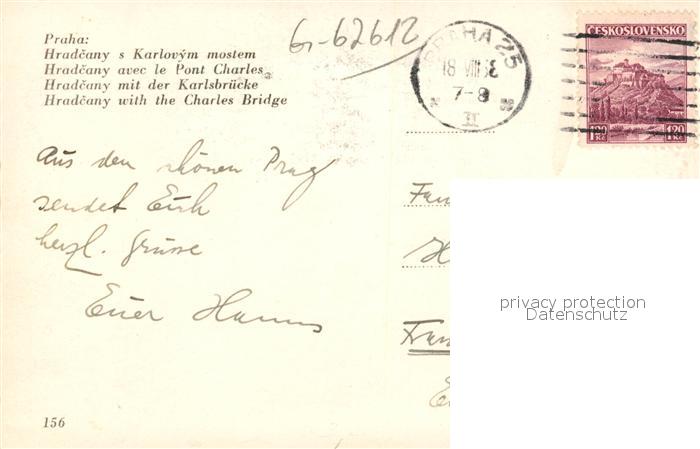 Praha:
Hradčany s Karlovým mostem
Hradčany avec le Pont Charles
Hradčany mit der Karlsbrücke
Hradčany with the Charles Bridge
G-62612
PRAHA 25
18 VIII 38
7-8
II
ČESKOSLOVENSKO
1.20 1.20
Aus dem schönen Prag
sendet Euch
herzl. Grüsse
Euer Hanns
privacy protection
Datenschutz
156